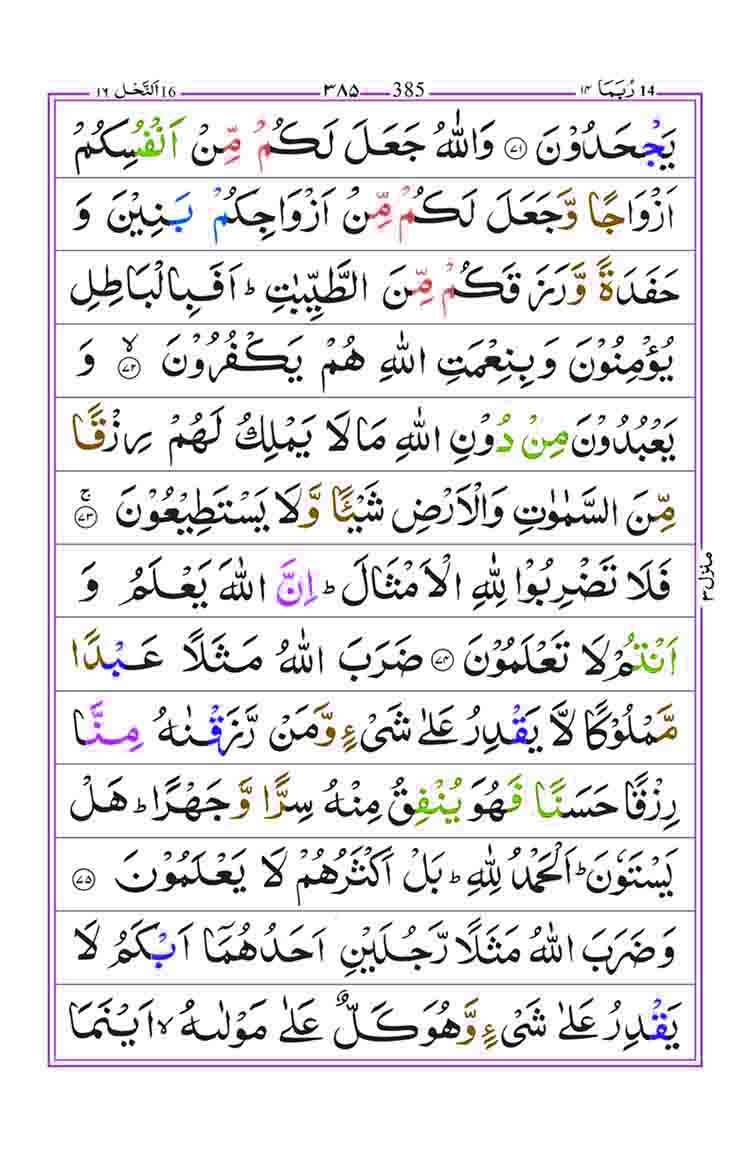 14 رُبَمَا ١٤ 385 — ٣٨۵ 16 اَلنَّحْل ١٦
يَجْحَدُوْنَ ۝٧١ وَاللّٰهُ جَعَلَ لَكُمْ مِّنْ اَنْفُسِكُمْ
اَزْوَاجًا وَّجَعَلَ لَكُمْ مِّنْ اَزْوَاجِكُمْ بَنِيْنَ وَ
حَفَدَةً وَّرَزَقَكُمْ مِّنَ الطَّيِّبٰتِ ؕ اَفَبِالْبَاطِلِ
يُؤْمِنُوْنَ وَبِنِعْمَتِ اللّٰهِ هُمْ يَكْفُرُوْنَ ۝٧٢ ۙ وَ
يَعْبُدُوْنَ مِنْ دُوْنِ اللّٰهِ مَا لَا يَمْلِكُ لَهُمْ رِزْقًا
مِّنَ السَّمٰوٰتِ وَالْاَرْضِ شَيْـًٔا وَّلَا يَسْتَطِيْعُوْنَ ۝٧٣ ۚ
فَلَا تَضْرِبُوْا لِلّٰهِ الْاَمْثَالَ ؕ اِنَّ اللّٰهَ يَعْلَمُ وَ
منزل ٣
اَنْتُمْ لَا تَعْلَمُوْنَ ۝٧٤ ضَرَبَ اللّٰهُ مَثَلًا عَبْدًا
مَّمْلُوْكًا لَّا يَقْدِرُ عَلٰى شَىْءٍ وَّمَنْ رَّزَقْنٰهُ مِنَّا
رِزْقًا حَسَنًا فَهُوَ يُنْفِقُ مِنْهُ سِرًّا وَّجَهْرًا ؕ هَلْ
يَسْتَوٗنَ ؕ اَلْحَمْدُ لِلّٰهِ ؕ بَلْ اَكْثَرُهُمْ لَا يَعْلَمُوْنَ ۝٧٥
وَضَرَبَ اللّٰهُ مَثَلًا رَّجُلَيْنِ اَحَدُهُمَاۤ اَبْكَمُ لَا
يَقْدِرُ عَلٰى شَىْءٍ وَّهُوَ كَلٌّ عَلٰى مَوْلٰىهُ ۙ اَيْنَمَا